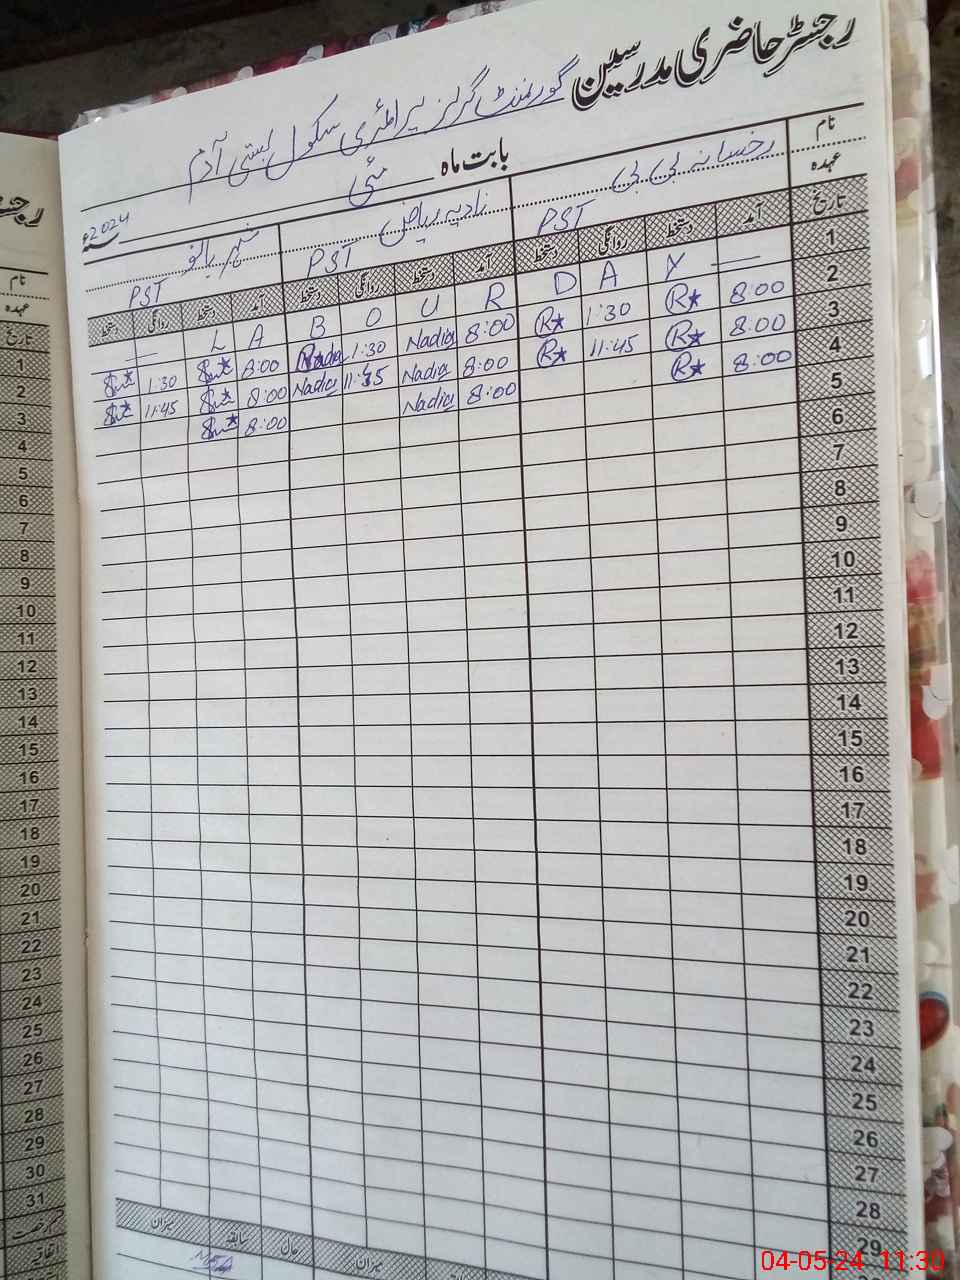 رجسٹر حاضری مدرسین
گورنمنٹ گرلز پرائمری سکول بستی آدم
بابت ماہ مئی
سنہ 2024ء
نام رخسانہ بی بی نادیہ ریاض
عہدہ PST PST PST
تاریخ آمد دستخط روانگی دستخط آمد دستخط روانگی دستخط آمد دستخط روانگی دستخط
1 — Y A D R U O B A L —
2 8:00 R 1:30 R 8:00 Nadia 1:30 Nadia 8:00 1:30
3 8:00 R 11:45 R 8:00 Nadia 11:45 Nadia 8:00 11:45
4 8:00 R 8:00 Nadia 8:00
5
6
7
8
9
10
11
12
13
14
15
16
17
18
19
20
21
22
23
24
25
26
27
28
29
میزان حال سابقہ میزان
رجسٹر
نام
عہدہ
تاریخ
1
2
3
4
5
6
7
8
9
10
11
12
13
14
15
16
17
18
19
20
21
22
23
24
25
26
27
28
29
30
31
اتفاقیہ
04-05-24 11:30